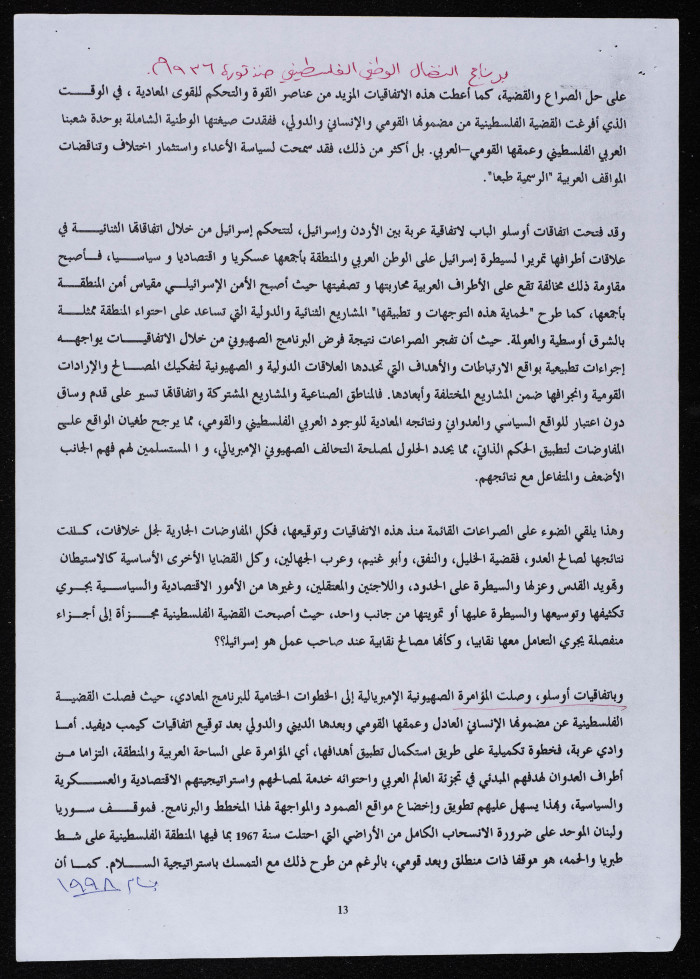 برنامج النضال الوطني الفلسطيني منذ ثورة ١٩٣٦م.
على حل الصراع والقضية، كما أعطت هذه الاتفاقيات المزيد من عناصر القوة والتحكم للقوى المعادية ، في الوقت
الذي أفرغت القضية الفلسطينية من مضمونها القومي والإنساني والدولي، ففقدت صيغتها الوطنية الشاملة بوحدة شعبنا
العربي الفلسطيني وعمقها القومي–العربي. بل أكثر من ذلك، فقد سمحت لسياسة الأعداء واستثمار اختلاف وتناقضات
المواقف العربية "الرسمية طبعا".
وقد فتحت اتفاقات أوسلو الباب لاتفاقية عربة بين الأردن وإسرائيل، لتتحكم إسرائيل من خلال اتفاقاتها الثنائية في
علاقات أطرافها تمريرا لسيطرة إسرائيل على الوطن العربي والمنطقة بأجمعها عسكريا و اقتصاديا و سياسيا، فأصبح
مقاومة ذلك مخالفة تقع على الأطراف العربية محاربتها و تصفيتها حيث أصبح الأمن الإسرائيلي مقياس أمن المنطقة
بأجمعها، كما طرح "لحماية هذه التوجهات و تطبيقها" المشاريع الثنائية والدولية التي تساعد على احتواء المنطقة ممثلة
بالشرق أوسطية والعولمة. حيث أن تفجر الصراعات نتيجة فرض البرنامج الصهيوني من خلال الاتفاقيات يواجهه
إجراءات تطبيعية بواقع الارتباطات والأهداف التي تحددها العلاقات الدولية و الصهيونية لتفكيك المصالح والإرادات
القومية وانجرافها ضمن المشاريع المختلفة وأبعادها. فالمناطق الصناعية والمشاريع المشتركة واتفاقاتها تسير على قدم وساق
دون اعتبار للواقع السياسي والعدواني ونتائجه المعادية للوجود العربي الفلسطيني والقومي، مما يرجح طغيان الواقع على
المفاوضات لتطبيق الحكم الذاتي، مما يحدد الحلول لمصلحة التحالف الصهيوني الإمبريالي، و ا المستسلمين لهم فهم الجانب
الأضعف والمتفاعل مع نتائجهم.
وهذا يلقي الضوء على الصراعات القائمة منذ هذه الاتفاقيات وتوقيعها، فكل المفاوضات الجارية لجل خلافات، كانت
نتائجها لصالح العدو، فقضية الخليل، والنفق، وأبو غنيم، وعرب الجهالين، وكل القضايا الأخرى الأساسية كالاستيطان
وتهويد القدس وعزلها والسيطرة على الحدود، واللاجئين والمعتقلين، وغيرها من الأمور الاقتصادية والسياسية يجري
تكثيفها وتوسيعها والسيطرة عليها أو تمويتها من جانب واحد، حيث أصبحت القضية الفلسطينية مجزأة إلى أجزاء
منفصلة يجري التعامل معها نقابيا، وكأنها مصالح نقابية عند صاحب عمل هو إسرائيل؟؟
وباتفاقيات أوسلو، وصلت المؤامرة الصهيونية الإمبريالية إلى الخطوات الختامية للبرنامج المعادي، حيث فصلت القضية
الفلسطينية عن مضمونها الإنساني العادل وعمقها القومي وبعدها الديني والدولي بعد توقيع اتفاقيات كيمب ديفيد. أما
وادي عربة، فخطوة تكميلية على طريق استكمال تطبيق أهدافها، أي المؤامرة على الساحة العربية والمنطقة، التزاما من
أطراف العدوان لهدفهم المبدئي في تجزئة العالم العربي واحتوائه خدمة لمصالحهم واستراتيجيتهم الاقتصادية والعسكرية
والسياسية، وبهذا يسهل عليهم تطويق وإخضاع مواقع الصمود والمواجهة لهذا المخطط والبرنامج. فموقف سوريا
ولبنان الموحد على ضرورة الانسحاب الكامل من الأراضي التي احتلت سنة 1967 بما فيها المنطقة الفلسطينية على شط
طبريا والحمه، هو موقفا ذات منطلق وبعد قومي، بالرغم من طرح ذلك مع التمسك باستراتيجية السلام. كما أن
١٩٩٨
13